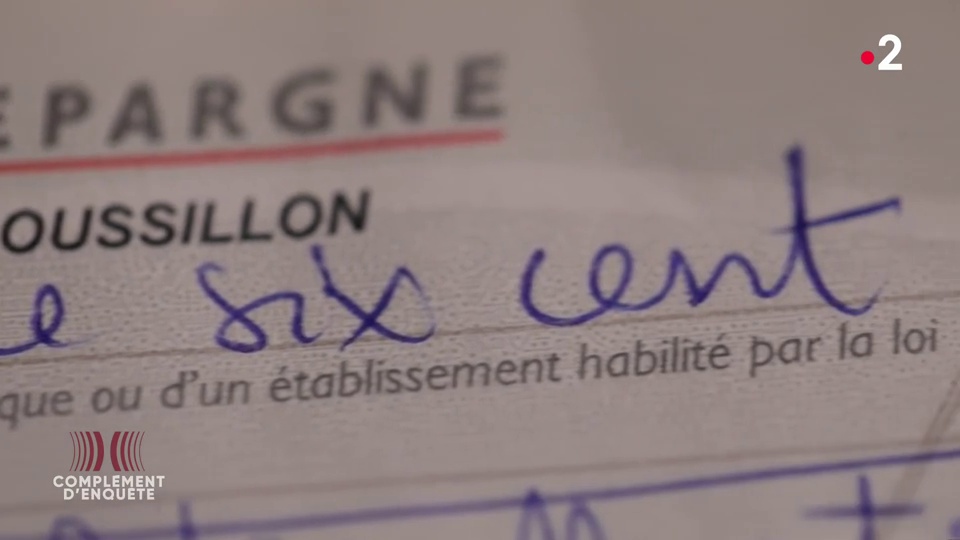 2
EPARGNE
OUSSILLON
e six cent
que ou d'un établissement habilité par la loi
COMPLÉMENT
D'ENQUÊTE